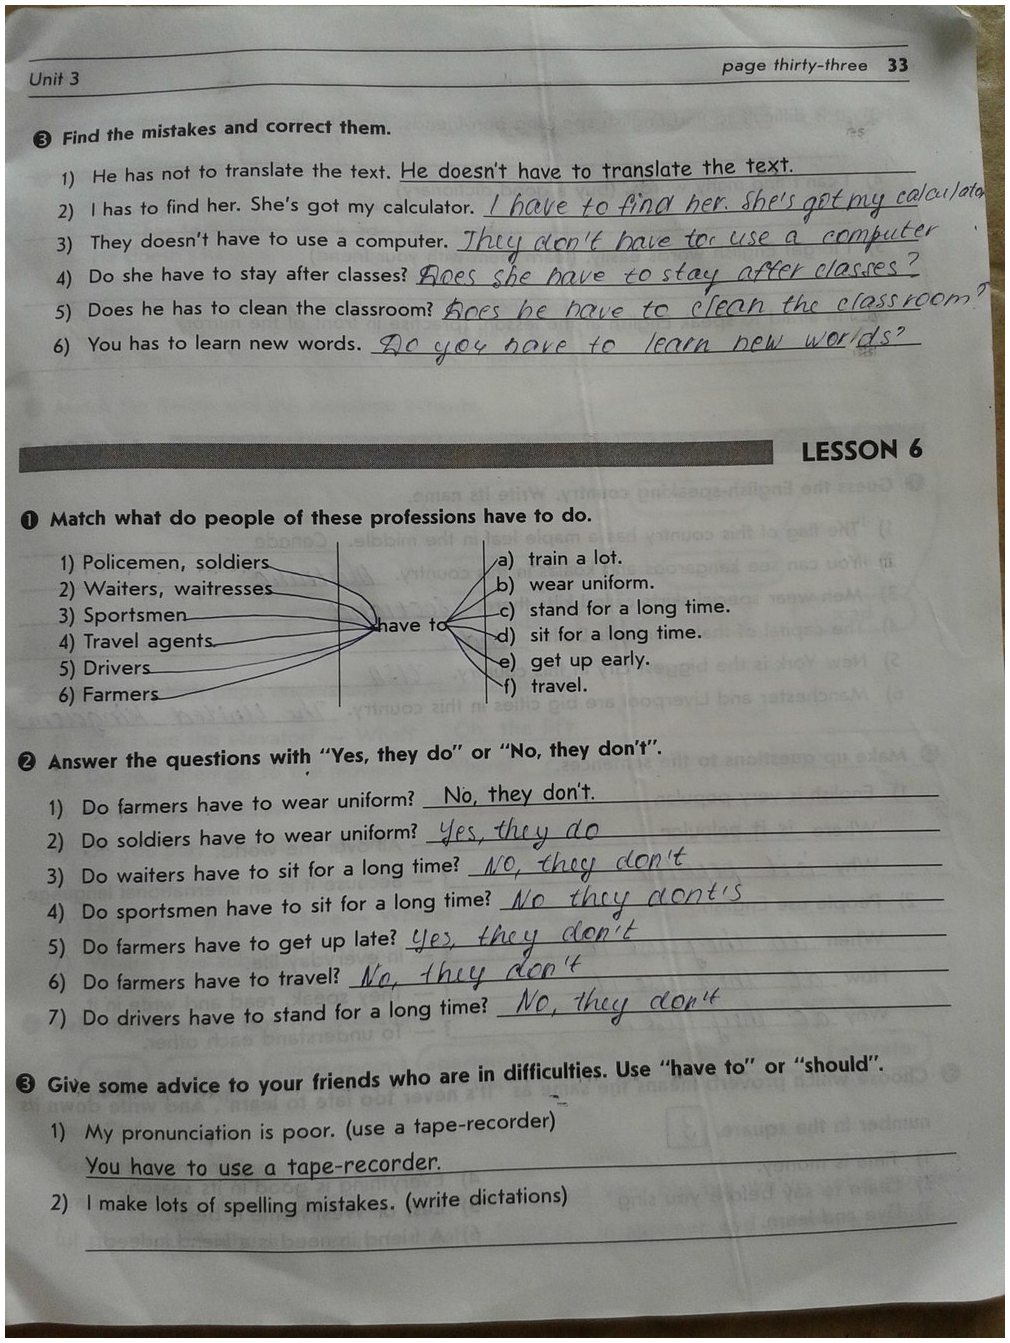 Unit 3
page thirty-three 33
3 Find the mistakes and correct them.
1) He has not to translate the text. He doesn't have to translate the text.
2) I has to find her. She's got my calculator. I have to find her. She's got my calculator
3) They doesn't have to use a computer. They don't have to use a computer
4) Do she have to stay after classes? Does she have to stay after classes?
5) Does he has to clean the classroom? Does he have to clean the classroom?
6) You has to learn new words. Do you have to learn new worlds?
LESSON 6
1 Match what do people of these professions have to do.
1) Policemen, soldiers
2) Waiters, waitresses
3) Sportsmen
4) Travel agents
5) Drivers
6) Farmers
have to
a) train a lot.
b) wear uniform.
c) stand for a long time.
d) sit for a long time.
e) get up early.
f) travel.
2 Answer the questions with "Yes, they do" or "No, they don't".
1) Do farmers have to wear uniform? No, they don't.
2) Do soldiers have to wear uniform? Yes, they do
3) Do waiters have to sit for a long time? NO, they don't
4) Do sportsmen have to sit for a long time? No they dont's
5) Do farmers have to get up late? Yes, they don't
6) Do farmers have to travel? No, they don't
7) Do drivers have to stand for a long time? No, they don't
3 Give some advice to your friends who are in difficulties. Use "have to" or "should".
1) My pronunciation is poor. (use a tape-recorder)
You have to use a tape-recorder.
2) I make lots of spelling mistakes. (write dictations)